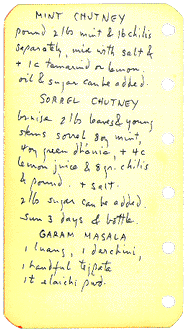 MINT CHUTNEY
pound 2 lbs mint & 1lb chilis
separately, mix with salt &
+ 1c tamarind or lemon.
oil & sugar can be added.
SORREL CHUTNEY
bruise 2 lbs leaves & young
stems sorrel 8oz mint,
4oz green dhánia, + 4c
lemon juice & 8 gr. chilis
& pound. + salt.
2 lbs sugar can be added.
sun 3 days & bottle.
GARAM MASALA
1 luang, 1 darchini,
1 handful tejpate
1t elaichi pwd.